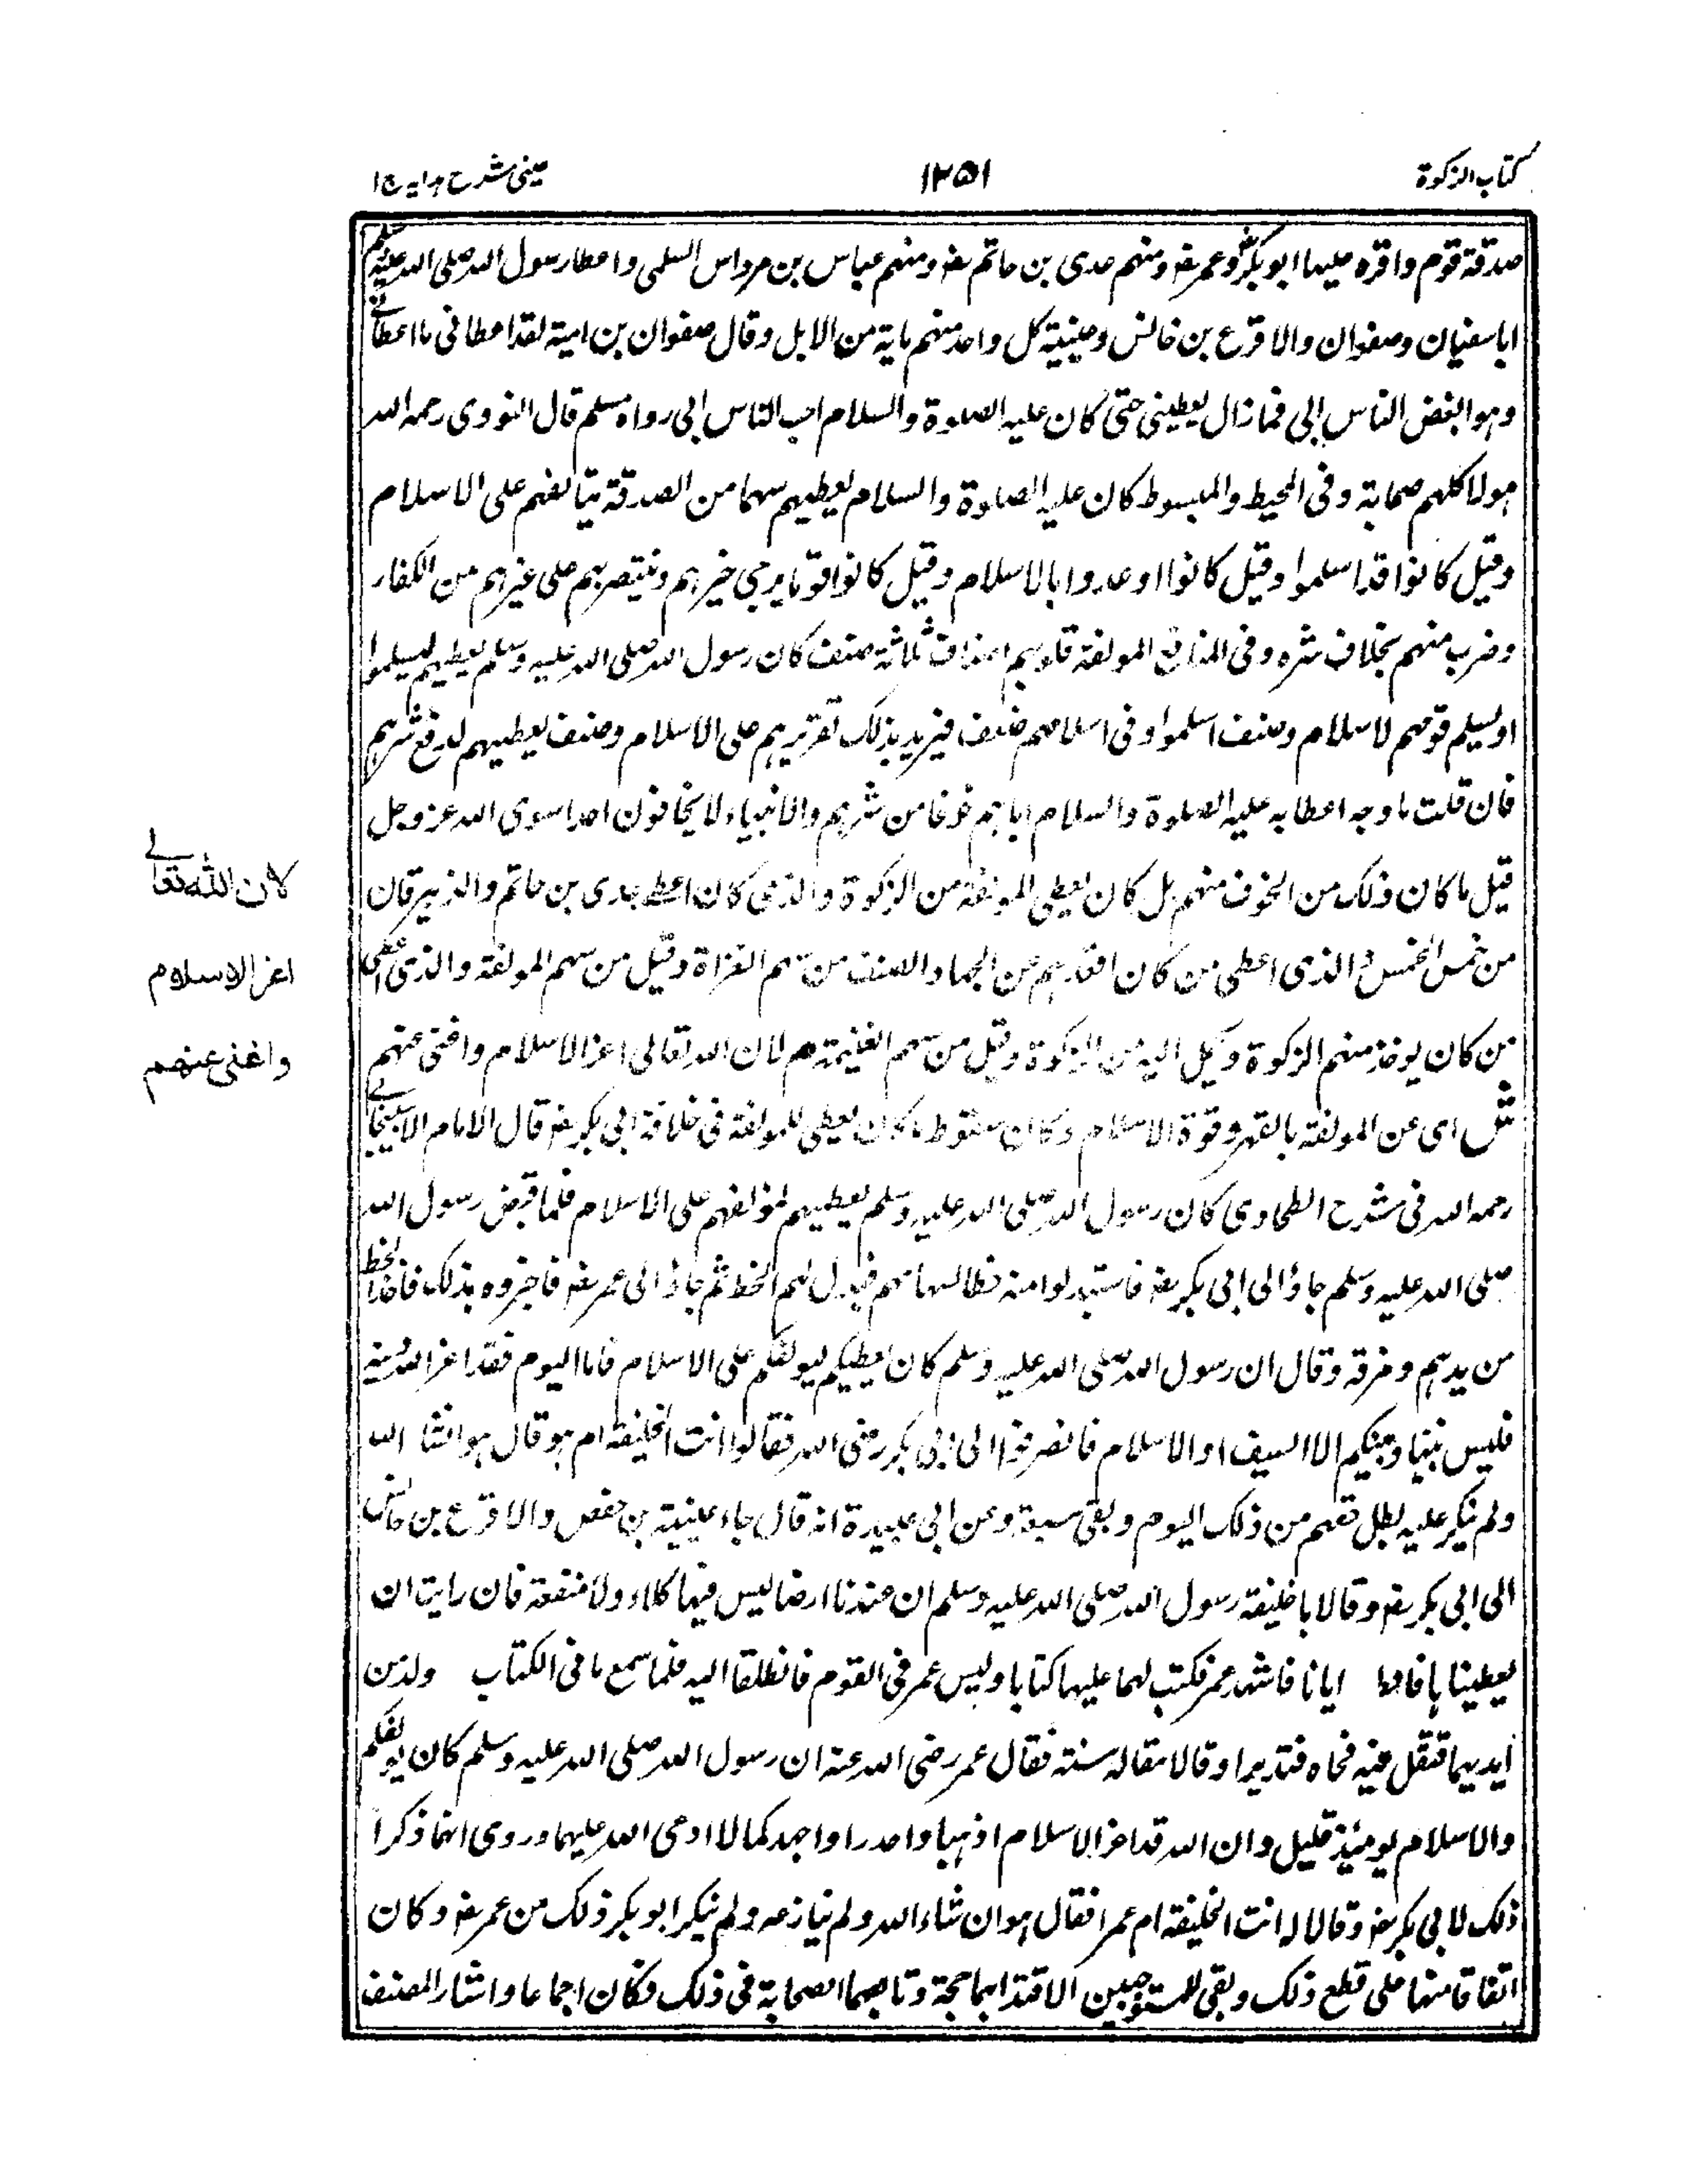 كتاب الزكوة
١٢٥١
عينى شرح هدايه ج١
صدقة قوم واقره عليها ابو بكرؓ وعمر رضہ ومنهم عدى بن حاتم رضہ ومنهم عباس بن مرداس السلمى واعطا رسول الله صلى الله عليه وسلم
ابا سفيان وصفوان والاقرع بن حابس وعيينة كل واحد منهم ماية من الابل وقال صفوان بن امية لقد اعطانى ما اعطانى
وهو ابغض الناس الى فما زال يعطينى حتى كان عليه الصلوة والسلام احب الناس الى رواه مسلم قال النووى رحمه الله
هولا كلهم صحابة وفى المحيط والمبسوط كان عليه الصلوة والسلام يعطيهم سهما من الصدقة يتالفهم على الاسلام
وقيل كانوا قد اسلموا وقيل كانوا اوعدوا بالاسلام وقيل كانوا قوما يرجى خيرهم وينتصر بهم على غيرهم من الكفار
وضرب منهم بخلاف شره وفى المنافع المولفة قلوبهم اصناف ثلاثة صنف كان رسول الله صلى الله عليه وسلم يعطيهم ليسلموا
او يسلم قومهم لاسلام وصنف اسلموا وفى اسلامهم ضعف فيزيد بذلك تقريرهم على الاسلام وصنف يعطيهم لدفع شرهم
فان قلت ما وجه اعطايه عليه الصلوة والسلام اياهم خوفا من شرهم والانبياء لا يخافون احدا سوى الله عز وجل
قيل ما كان ذلك من الخوف منهم بل كان يعطى المولفة من الزكوة والذى كان اعطى عدى بن حاتم والزبيرقان
من خمس الخمس والذى اعطى من كان افقدهم عن الجهاد الصنف من سهم الغزاة وقيل من سهم المولفة والذى اعطى
من كان يوخذ منهم الزكوة ويحمل اليه من الزكوة وقيل من سهم الغنيمة م لان الله تعالى اعز الاسلام واغنى عنهم
ش اى عن المولفة بالقهر وقوة الاسلام وكان سقوط ما كان يعطى للمولفة فى خلافة ابى بكر رضہ قال الامام الاسبيجابى
رحمه الله فى شرح الطحاوى كان رسول الله صلى الله عليه وسلم يعطيهم لمؤلفهم على الاسلام فلما قبض رسول الله
صلى الله عليه وسلم جاؤ الى ابى بكر رضہ فاستبدلوا منه خطا لسهامهم فبدل لهم الخط ثم جاؤ الى عمر رضہ فاخبروه بذلك فاخذ الخط
من يدهم ومزقه وقال ان رسول الله صلى الله عليه وسلم كان يعطيكم ليولفكم على الاسلام فاما اليوم فقد اعز الله دينه
فليس بيننا وبينكم الا السيف او الاسلام فانصرفوا الى ابى بكر رضى الله فقالوا انت الخليفة ام هو قال هو انشا الله
ولم ينكر عليه بطل حقهم من ذلك اليوم وبقى سبعة وعن ابى عبيدة انه قال جاء عيينة بن حفص والاقرع بن حابس
الى ابى بكر رضہ وقالا يا خليفة رسول الله صلى الله عليه وسلم ان عندنا ارضا ليس فيها كلاء ولا منفعة فان رايت ان
يعطينا ايانا فاشهد عمر فكتب لهما عليها كتابا وليس عمر فى القوم فانطلقا اليه فلما سمع ما فى الكتاب
ايديهما فتفل فيه فمحاه فتذمرا وقالا مقالة سنة فقال عمر رضى الله عنه ان رسول الله صلى الله عليه وسلم كان يولفكم
والاسلام يومئذ قليل وان الله قد اعز الاسلام اذهبا واجهدا كما لا ادعى الله عليهما وروى انهما ذكرا
ذلك لابى بكر رضہ وقالا له انت الخليفة ام عمر فقال هو ان شاء الله ولم ينازعه ولم ينكر ابو بكر ذلك من عمر رضہ وكان
اتفاقا منها على قطع ذلك وبقى للمستوجبين الاقتدا بهما حجة وتابعهما الصحابة فى ذلك فكان اجماعا واشار المصنف
لان الله تعالى
اعز الاسلام
واغنى عنهم